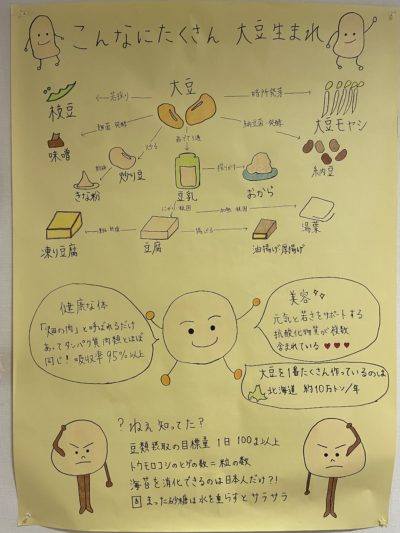 こんなにたくさん 大豆生まれ
大豆
若採り
暗所発芽
枝豆
大豆モヤシ
細菌 発酵
納豆菌 発酵
味噌
炒る
納豆
炒り豆
きな粉
豆乳
おから
湯葉
凍り豆腐
豆腐
揚げる
油揚げ厚揚げ
健康な体
「畑の肉」と呼ばれるだけ
あってタンパク質肉類とほぼ
同じ! 吸収率95%以上
美容
元気と若さをサポートする
抗酸化物質が複数
含まれている♥♥♥
大豆を1番たくさん作っているのは
北海道 約10万トン/年
?ねぇ知ってた?
豆類摂取の目標量 1日100g以上
トウモロコシのヒゲの数=粒の数
海苔を消化できるのは日本人だけ?!
固まった砂糖は水を垂らすとサラサラ